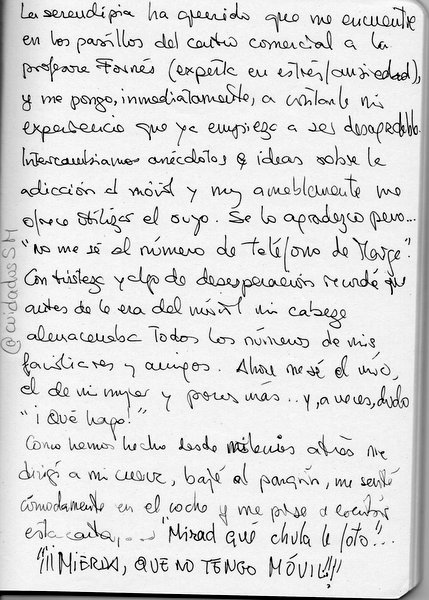 La serendipia ha querido que me encuentre
en los pasillos del centro comercial a la
profesora Fornés (experta en estrés/ansiedad),
y me pongo, inmediatamente, a contarle mi
experiencia que ya empieza a ser desagradable.
Intercambiamos anécdotas e ideas sobre la
adicción al móvil y muy amablemente me
ofrece utilizar el suyo. Se lo agradezco pero...
"No me sé el número de teléfono de Marga".
Con tristeza y algo de desesperación recordé que
antes de la era del móvil mi cabeza
almacenaba todos los números de mis
familiares y amigos. Ahora me sé el mío,
el de mi mujer y pocos más... y, a veces, dudo
"¡Qué hago!"
Como hemos hecho desde milenios atrás me
dirigí a mi cueva, bajé al parking, me senté
cómodamente en el coche y me puse a escribir
esta carta, ... "Mirad qué chula la foto"...
"¡¡¡MIERDA, QUE NO TENGO MÓVIL!!!"
@cuidadosSM